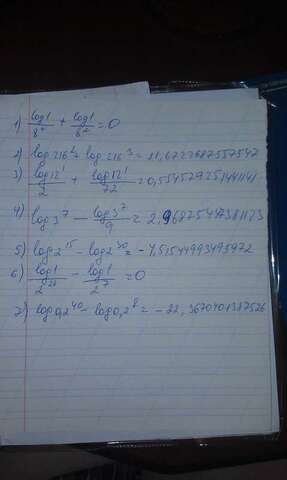 1) log1/8⁴ + log1/8² = 0
2) log216² + log216³ = 11,6722687557547
3) log12¹/2 + log12¹/72 = 0,554579251441141
4) log3⁷ - log3⁷/9 = 2,96875497381123
5) log2¹⁵ - log2³⁰ = -4,51544993495972
6) log1/2²⁸ - log1/2⁷ = 0
7) log0,2⁴⁰ - log0,2⁸ = -22,3670401387526